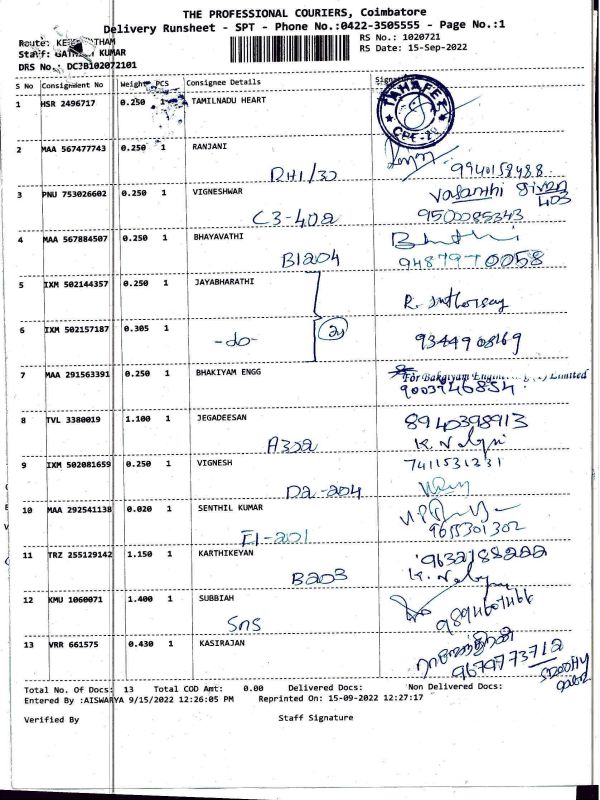 THE PROFESSIONAL COURIERS, Coimbatore
Delivery Runsheet - SPT - Phone No.:0422-3505555 - Page No.:1
Route:
RS No.: 1020721
Staff: KUMAR
RS Date: 15-Sep-2022
DRS No.: DC3B102072101
S No Consignment No Weight PCS Consignee Details
1 HSR 2496717 0.250 1 TAMILNADU HEART
TAHAFET
2 MAA 567477743 0.250 1 RANJANI
9940158488
3 PNU 753026602 0.250 1 VIGNESHWAR
Vasanthi
403
C3-402 9500085343
4 MAA 567884507 0.250 1 BHAYAVATHI
B1204 9487970058
5 IXM 502144357 0.250 1 JAYABHARATHI
6 IXM 502157187 0.305 1 -do-
9344908169
7 MAA 291563391 0.250 1 BHAKIYAM ENGG
For Bakgiyam Limited
9003946854
8 TVL 3380019 1.100 1 JEGADEESAN
8940398913
A302
9 IXM 502081659 0.250 1 VIGNESH
7411531231
D2-204
10 MAA 292541138 0.020 1 SENTHIL KUMAR
9655301302
11 TRZ 255129142 1.150 1 KARTHIKEYAN
B203
12 KMU 1060071 1.400 1 SUBBIAH
SNS 9894607466
13 VRR 661575 0.430 1 KASIRAJAN
Total No. Of Docs: 13 Total COD Amt: 0.00 Delivered Docs: Non Delivered Docs:
Entered By :AISWARYA 9/15/2022 12:26:05 PM Reprinted On: 15-09-2022 12:27:17
Verified By Staff Signature